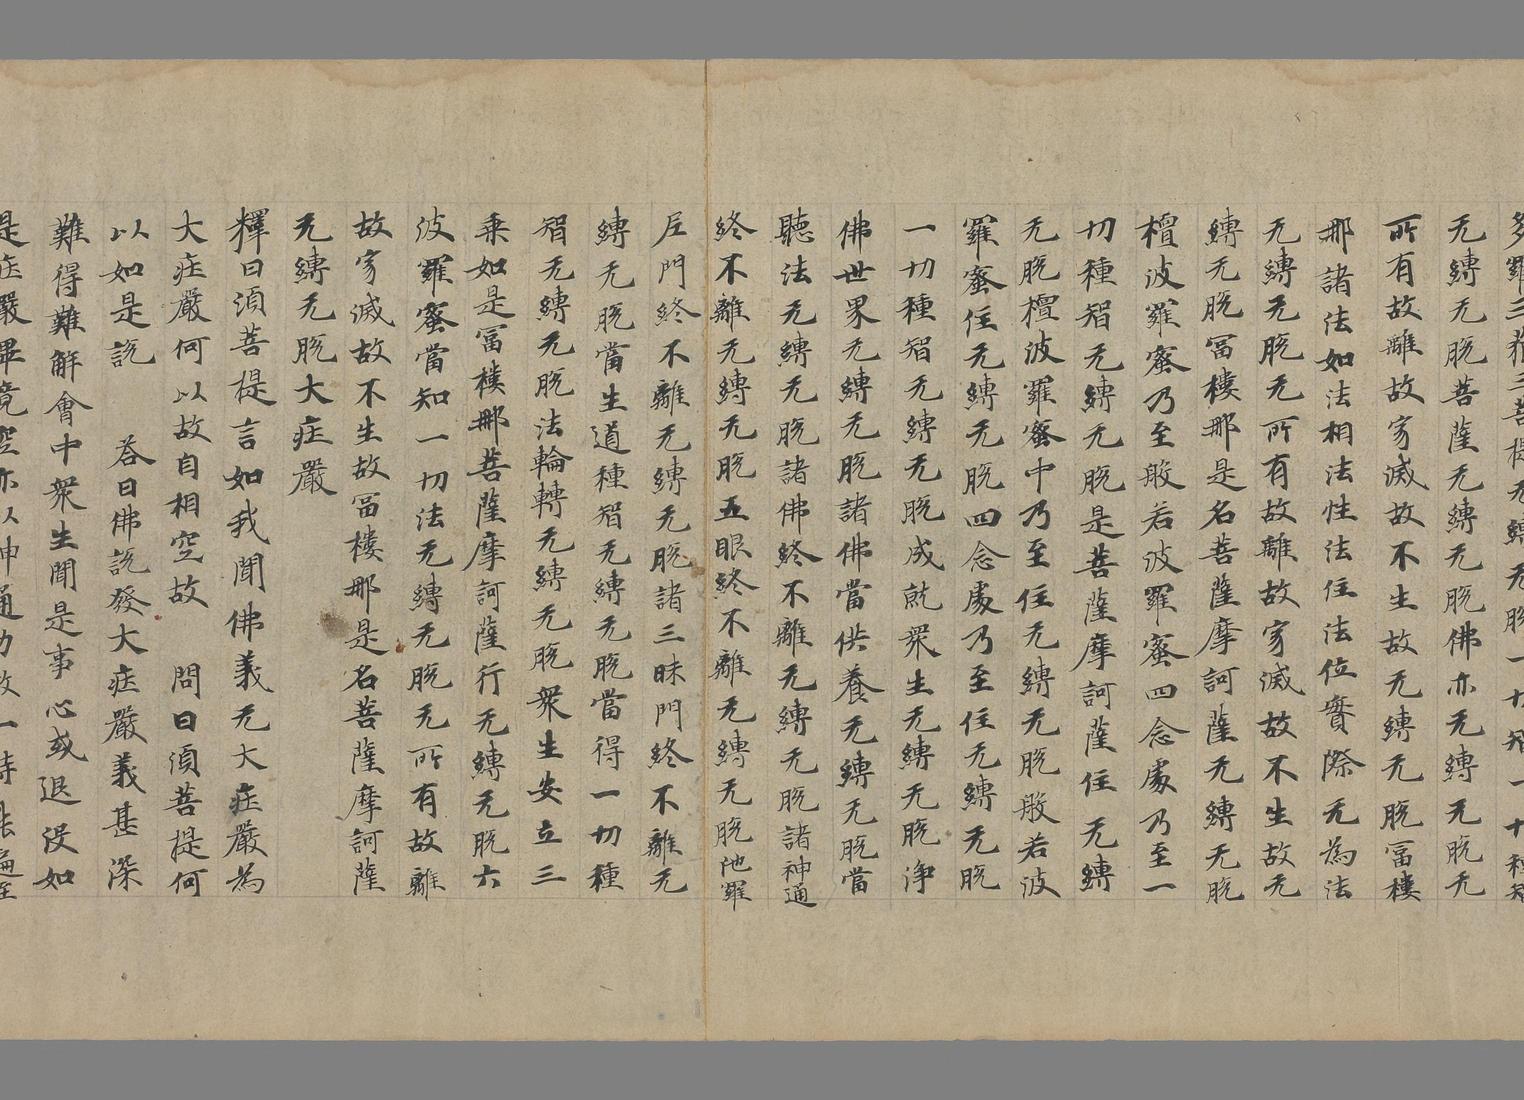 多羅三藐三菩提无縛无脫一切智一切種智
无縛无脫菩薩无縛无脫佛亦无縛无脫无
所有故離故寂滅故不生故无縛无脫冨樓
那諸法如法相法性法住法位實際无為法
无縛无脫无所有故離故寂滅故不生故无
縛无脫冨樓那是名菩薩摩訶薩无縛无脫
檀波羅蜜乃至般若波羅蜜四念處乃至一
切種智无縛无脫是菩薩摩訶薩住无縛
无脫檀波羅蜜中乃至住无縛无脫般若波
羅蜜住无縛无脫四念處乃至住无縛无脫
一切種智无縛无脫成就衆生无縛无脫淨
佛世界无縛无脫諸佛當供養无縛无脫當
聽法无縛无脫諸佛終不離无縛无脫諸神通
終不離无縛无脫五眼終不離无縛无脫陁羅
尼門終不離无縛无脫諸三昧門終不離无
縛无脫當生道種智无縛无脫當得一切種
智无縛无脫法輪轉无縛无脫衆生安立三
乘如是冨樓那菩薩摩訶薩行无縛无脫六
波羅蜜當知一切法无縛无脫无所有故離
故寂滅故不生故冨樓那是名菩薩摩訶薩
无縛无脫大庄嚴
釋曰湏菩提言如我聞佛義无大庄嚴為
大庄嚴何以故自相空故 問曰湏菩提何
以如是說 荅曰佛說發大庄嚴義甚深
難得難解會中衆生聞是事心或退沒如
是庄嚴畢竟空亦以神通力故一時能遍至